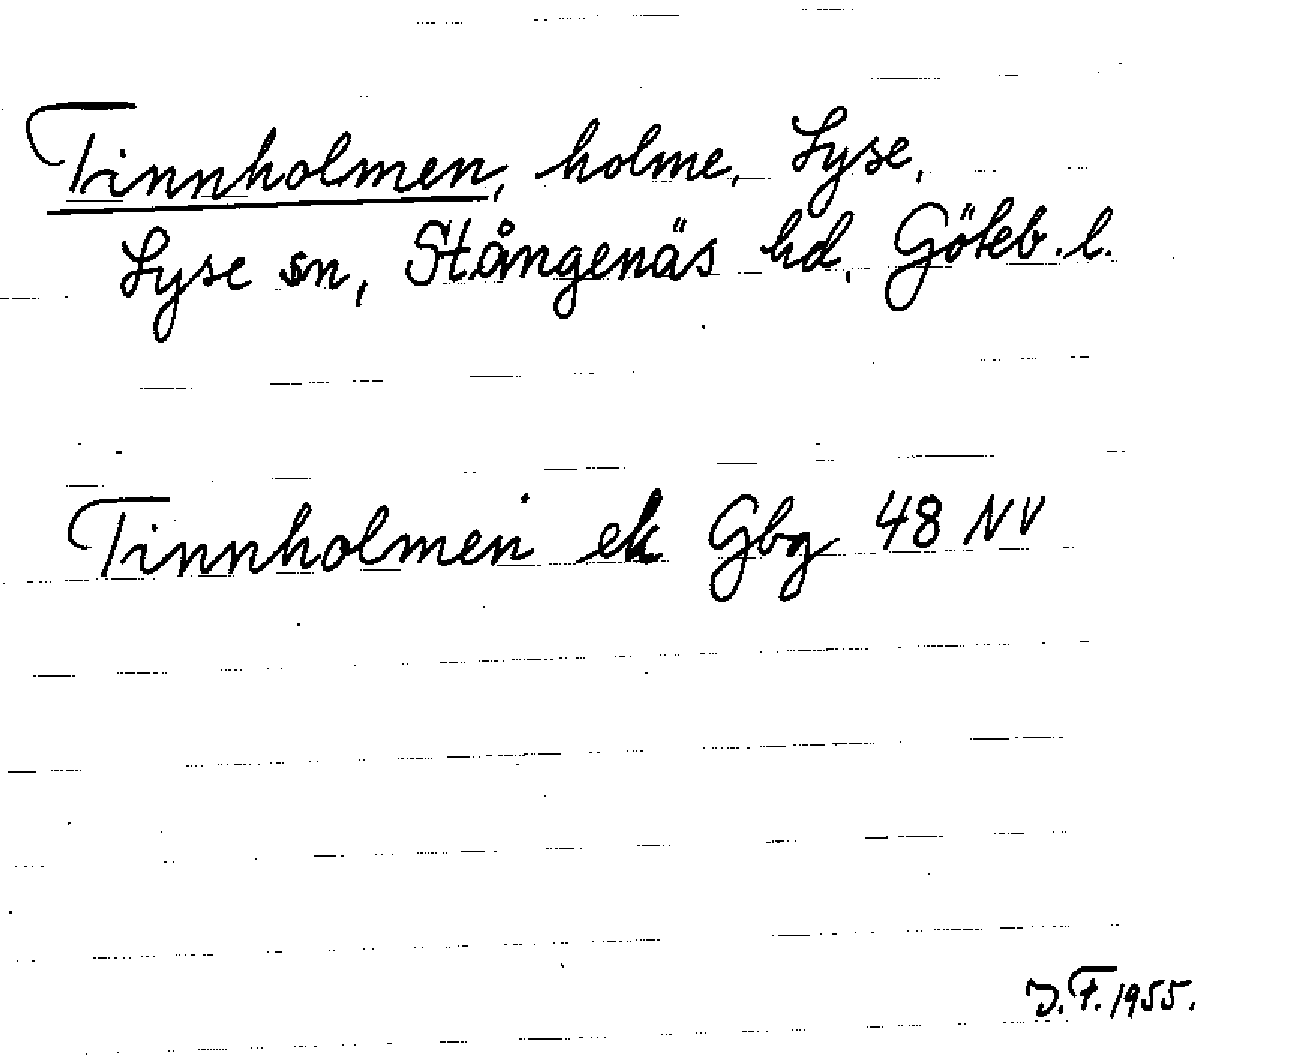 Tinnholmen, holme, Lyse,
Lyse sn, Stångenäs hd, Göteb. l.
Tinnholmen ek Gbg 48 NV
J.F. 1955.